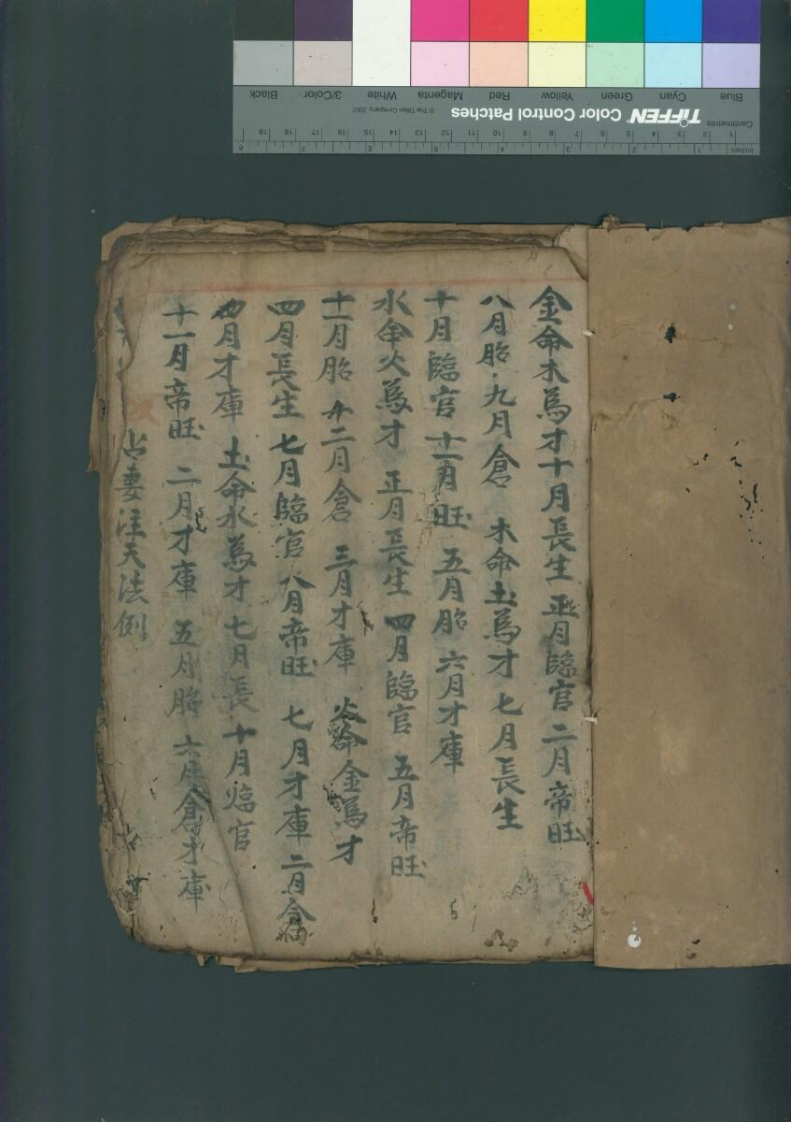 金命木為才十月長生正月臨官二月帝旺
八月胎九月倉木命土為才七月長生
十月臨官十一月旺五月胎六月才庫
水命火為才正月長生四月臨官五月帝旺
十一月胎十二月倉三月才庫火命金為才
四月長生七月臨官八月帝旺七月才庫二月倉
四月才庫土命水為才七月長十月臨官
十一月帝旺二月才庫五月胎六月倉才庫
占妻注夫法例
Blue
Cyan
Green
Yellow
Red
Magenta
White
3/Color
Black
TIFFEN Color Control Patches
© The Tiffen Company, 2007
Centimetres
Inches